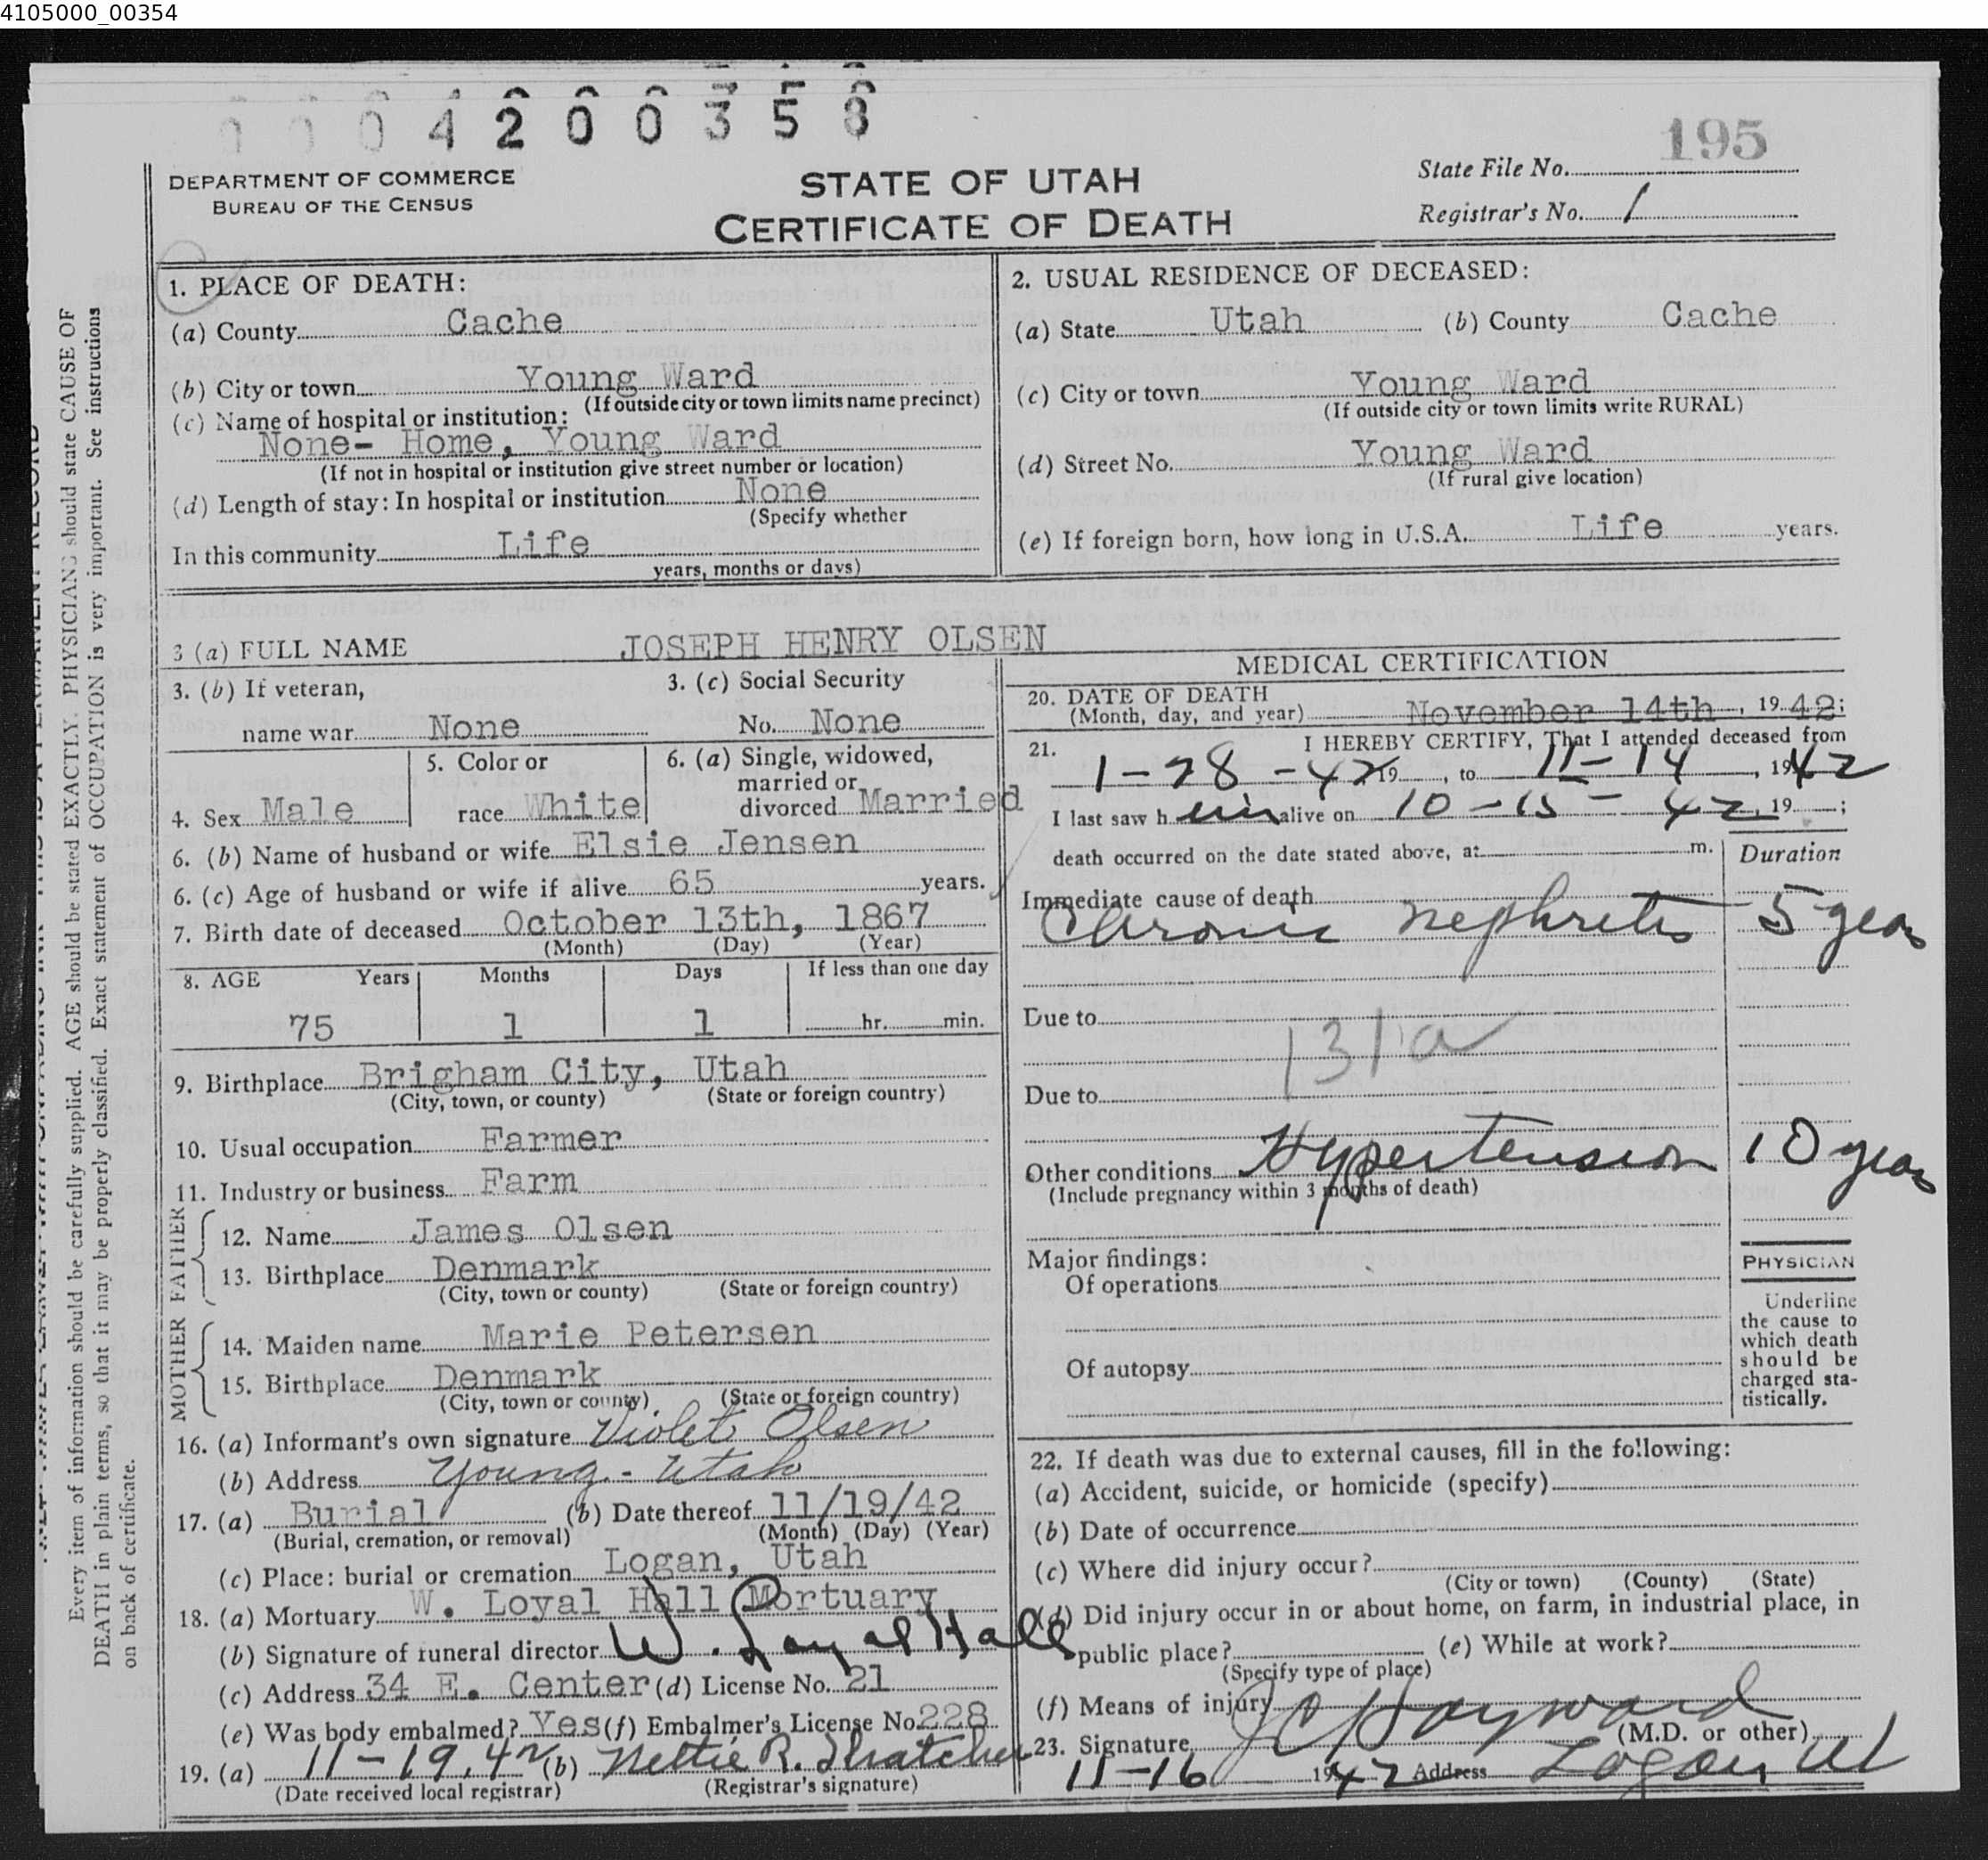 4105000_00354
0004200358
195
DEPARTMENT OF COMMERCE
BUREAU OF THE CENSUS
STATE OF UTAH
CERTIFICATE OF DEATH
State File No.
Registrar's No. 1
Every item of information should be carefully supplied. AGE should be stated EXACTLY. PHYSICIANS should state CAUSE OF
DEATH in plain terms, so that it may be properly classified. Exact statement of OCCUPATION is very important. See instructions
on back of certificate.
1. PLACE OF DEATH:
(a) County Cache
(b) City or town Young Ward
(If outside city or town limits name precinct)
(c) Name of hospital or institution:
None- Home, Young Ward
(If not in hospital or institution give street number or location)
(d) Length of stay: In hospital or institution None
(Specify whether
In this community Life
years, months or days)
2. USUAL RESIDENCE OF DECEASED:
(a) State Utah (b) County Cache
(c) City or town Young Ward
(If outside city or town limits write RURAL)
(d) Street No. Young Ward
(If rural give location)
(e) If foreign born, how long in U.S.A. Life years.
3 (a) FULL NAME JOSEPH HENRY OLSEN
3. (b) If veteran,
name war None
3. (c) Social Security
No. None
4. Sex Male
5. Color or
race White
6. (a) Single, widowed,
married or
divorced Married
6. (b) Name of husband or wife Elsie Jensen
6. (c) Age of husband or wife if alive 65 years.
7. Birth date of deceased October 13th, 1867
(Month) (Day) (Year)
8. AGE Years Months Days If less than one day
75 1 1 hr. min.
9. Birthplace Brigham City, Utah
(City, town, or county) (State or foreign country)
10. Usual occupation Farmer
11. Industry or business Farm
FATHER
12. Name James Olsen
13. Birthplace Denmark
(City, town or county) (State or foreign country)
MOTHER
14. Maiden name Marie Petersen
15. Birthplace Denmark
(City, town or county) (State or foreign country)
16. (a) Informant's own signature Violet Olsen
(b) Address Young - Utah
17. (a) Burial (b) Date thereof 11/19/42
(Burial, cremation, or removal) (Month) (Day) (Year)
(c) Place: burial or cremation Logan, Utah
18. (a) Mortuary W. Loyal Hall Mortuary
(b) Signature of funeral director W. Loyal Hall
(c) Address 34 E. Center (d) License No. 21
(e) Was body embalmed? Yes (f) Embalmer's License No. 228
19. (a) 11-19.42 (b) Nettie R. Thatcher
(Date received local registrar) (Registrar's signature)
MEDICAL CERTIFICATION
20. DATE OF DEATH
(Month, day, and year) November 14th, 1942;
21. I HEREBY CERTIFY, That I attended deceased from
1-28-42 19 , to 11-14, 1942
I last saw him alive on 10-15-42, 19 ;
death occurred on the date stated above, at m. Duration
Immediate cause of death
Chronic nephritis 5 years
Due to
131a
Due to
Other conditions Hypertension 10 years
(Include pregnancy within 3 months of death)
Major findings:
Of operations
Of autopsy
PHYSICIAN
Underline
the cause to
which death
should be
charged sta-
tistically.
22. If death was due to external causes, fill in the following:
(a) Accident, suicide, or homicide (specify)
(b) Date of occurrence
(c) Where did injury occur?
(City or town) (County) (State)
(d) Did injury occur in or about home, on farm, in industrial place, in
public place? (e) While at work?
(Specify type of place)
(f) Means of injury
23. Signature J C Hayward (M.D. or other)
11-16 1942 Address Logan Ut